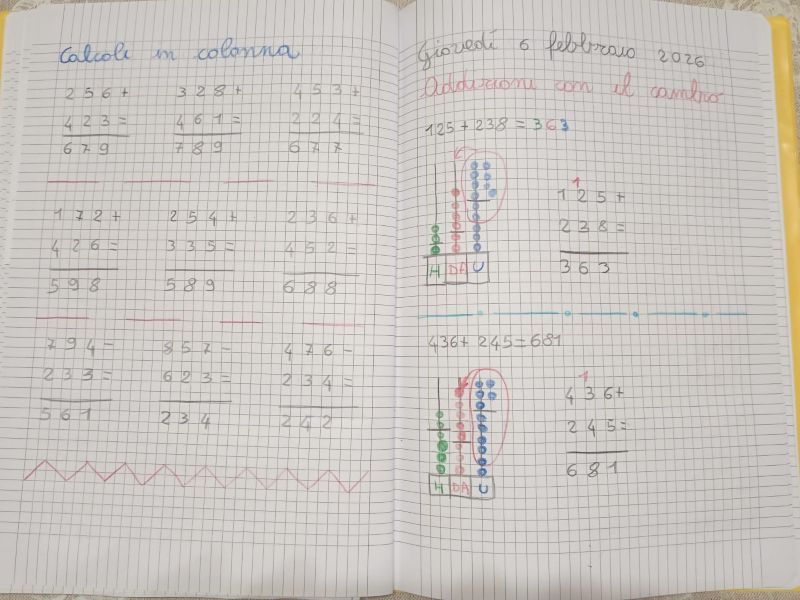 Calcoli in colonna
256+ 328+ 453+
423= 461= 224=
679 789 677
172+ 254+ 236+
426= 335= 452=
598 589 688
794- 857- 476-
233= 623= 234=
561 234 242
Giovedì 6 febbraio 2026
Addizioni con il cambio
125+238=363
1
125+
238=
363
H DA U
436+245=681
1
436+
245=
681
H DA U